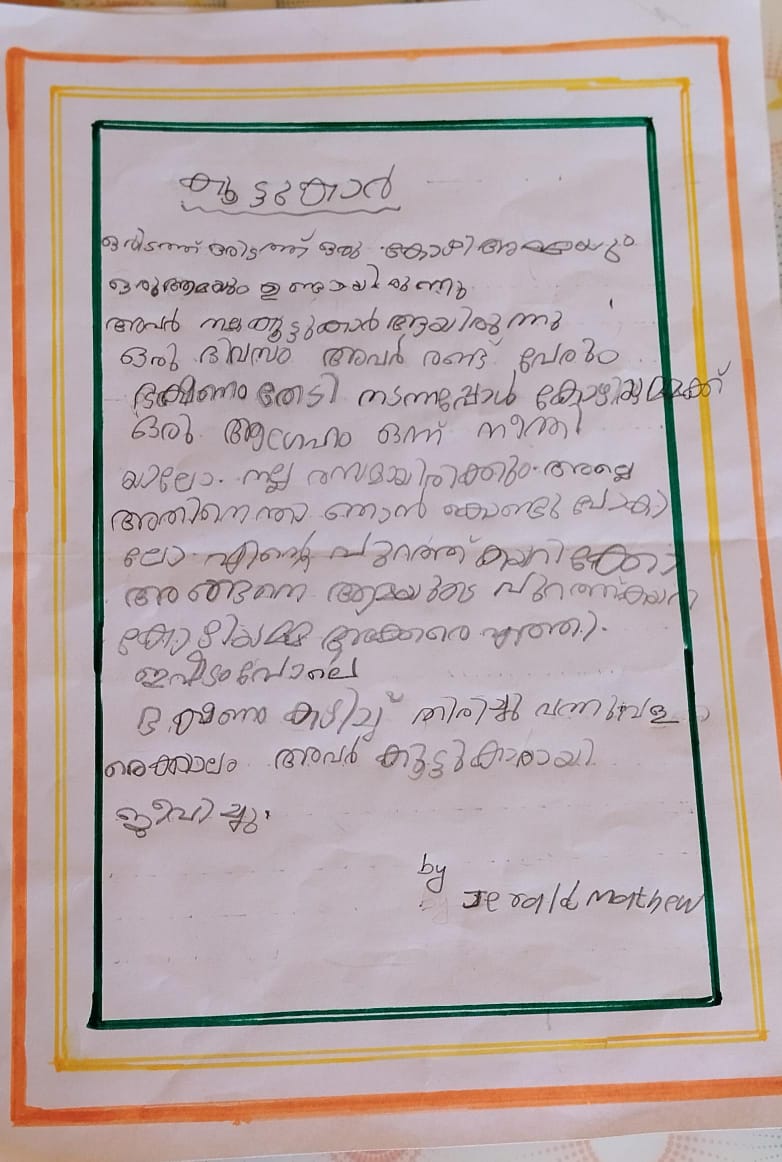 കൂട്ടുകാർ
ഒരിടത്ത് ഒരിടത്ത് ഒരു കോഴിഅമ്മയും
ഒരുആമയും ഉണ്ടായിരുന്നു
അവർ നല്ലകൂട്ടുകാർ ആയിരുന്നു
ഒരു ദിവസം അവർ രണ്ട് പേരും
ഭക്ഷണം തേടി നടന്നപ്പോൾ കോഴിയമ്മക്ക്
ഒരു ആഗ്രഹം ഒന്ന് നീന്തി
യാലോ. നല്ല രസമായിരിക്കും അല്ലെ
അതിനെന്താ ഞാൻ കൊണ്ടു പോകാ
ലോ എൻ്റെ പുറത്ത് കയറി ക്കോ
അങ്ങനെ ആമയുടെ പുറത്ത്കയറി
കോഴിയമ്മ അക്കരെ എത്തി.
ഇഷ്ടംപോലെ
ഭക്ഷണം കഴിച്ച് തിരിച്ചു വന്നു
രെക്കാലം അവർ കൂട്ടുകാരായി
ജീവിച്ചു.
by
Jerald Mathew